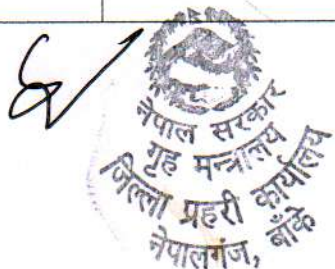 नेपाल सरकार
गृह मन्त्रालय
जिल्ला प्रहरी कार्यालय
नेपालगंज, बाँके